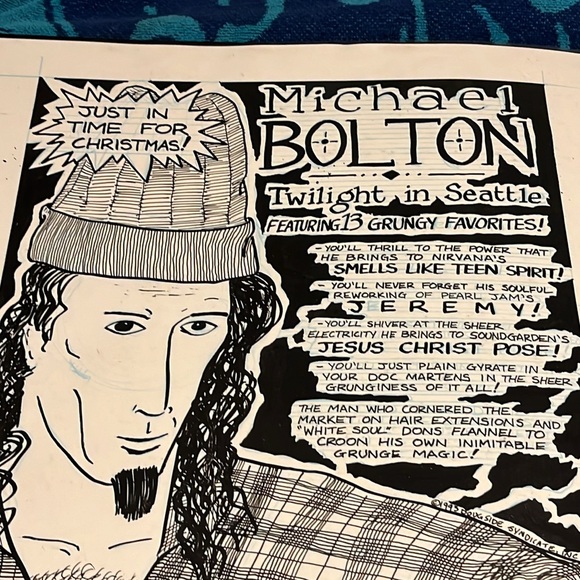 JUST IN
TIME FOR
CHRISTMAS!
Michael
BOLTON
Twilight in Seattle
FEATURING 13 GRUNGY FAVORITES!
-YOU'LL THRILL TO THE POWER THAT
HE BRINGS TO NIRVANA'S
SMELLS LIKE TEEN SPIRIT!
-YOU'LL NEVER FORGET HIS SOULFUL
REWORKING OF PEARL JAM'S
JEREMY!
-YOU'LL SHIVER AT THE SHEER
ELECTRICITY HE BRINGS TO SOUNDGARDEN'S
JESUS CHRIST POSE!
-YOU'LL JUST PLAIN GYRATE IN
YOUR DOC MARTENS IN THE SHEER
GRUNGINESS OF IT ALL!
THE MAN WHO CORNERED THE
MARKET ON HAIR EXTENSIONS AND
"WHITE SOUL" DONS FLANNEL TO
CROON HIS OWN INIMITABLE
GRUNGE MAGIC!
SYNDICATE, INC